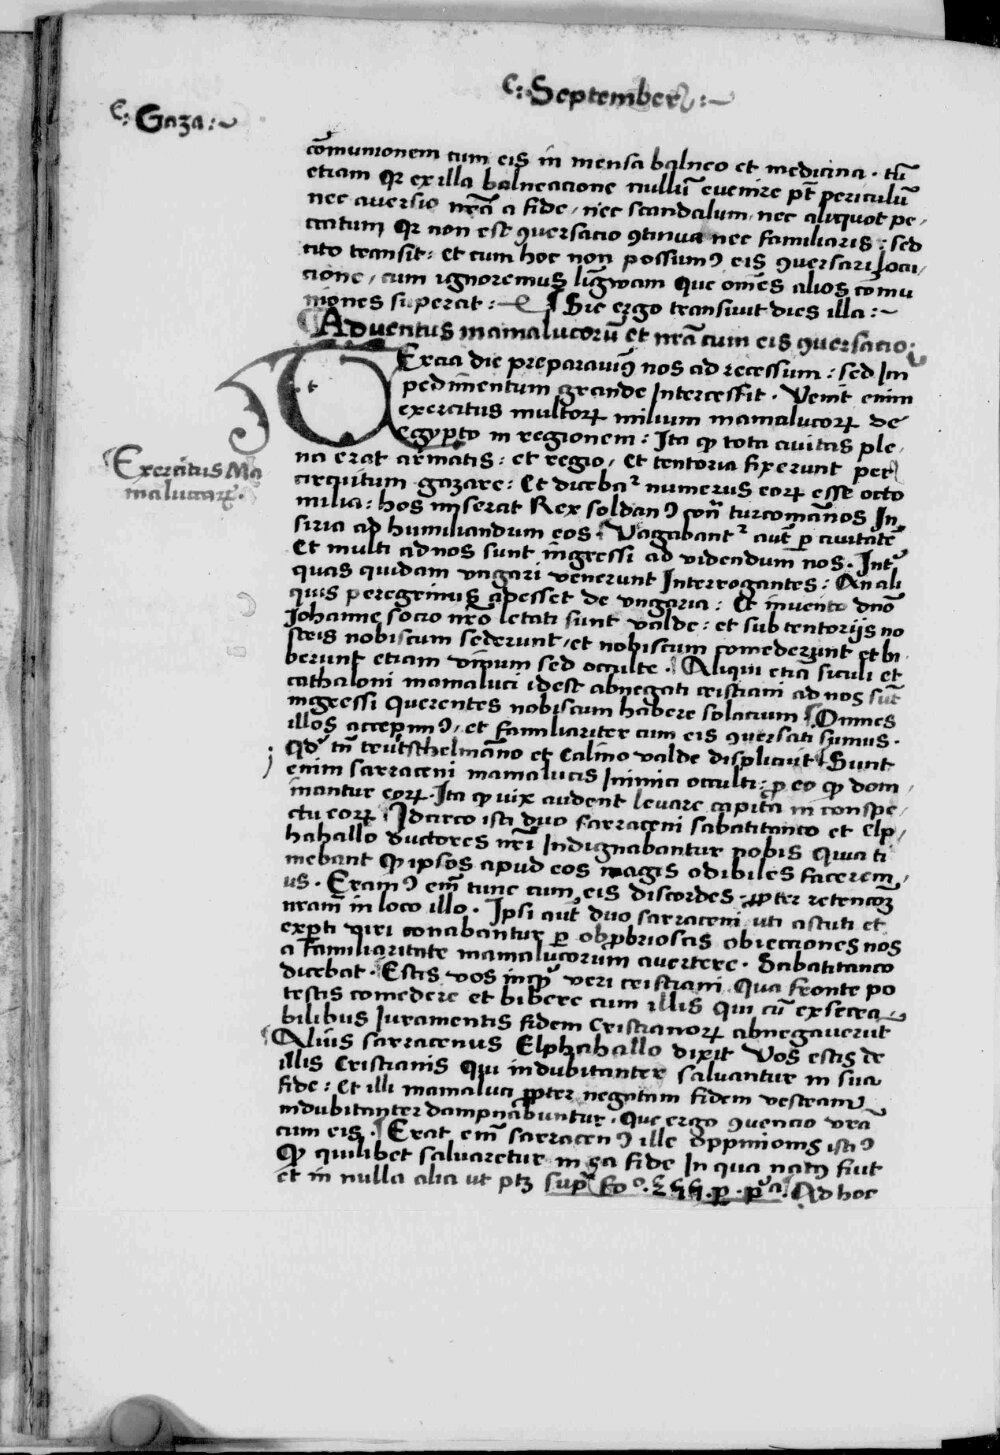 C: September :~
C: Gaza :~
cōmunionem cum eis in mensa balneo et medicina . tū
etiam qr ex illa balneacione nullū evenire pt̄ periculū
nec aversio nrā a fide , nec scandalum , nec aliquot pe ,
ccatum qr non est ꝯversacio ꝯtinua nec familiaris : sed
cito transit : et cum hoc non possumꝰ eis ꝯversari loci ,
cione , cum ignoremus ligwam que omēs alios cōmu
niones superat : ~ ¶ Sic ergo transivit dies illa : ~
¶ Adventus mamalucorū et nrā cum eis ꝯversacio :
TErcia die preparavimꝰ nos ad recessum : sed Im
pedimentum grande Intercessit . Venit enim
exercitus multorꝝ milium mamalucorꝝ de
egypto in regionem : Ita ꝙ tota civitas ple ,
Exercitus Ma
malucorꝝ .
na erat armatis : et regio , et tentoria fixerunt per
circuitum gazare : Et dicebar numerus eorꝝ esse octo
milia : hos miserat Rex soldanꝰ con̄ turcomānos In
siria ad humiliandum eos . Vagabantr aūt ꝑ civitatē
Et multi ad nos sunt ingressi ad videndum nos . Intr
quas quidam ungari venerunt Interrogantes : An ali
quis peregrinus adesset de ungaria : Et invento dnō
Johanne socio nrō letati sunt valde : et sub tentorijs no
stris nobiscum sederunt , et nobiscum comederunt et bi ,
berunt etiam vinum sed occulte . Aliqui etiā siculi et
cathaloni mamaluci idest abnegati cristiani ad nos sūt
ingressi querentes nobiscum habere solacium Omnes
illos accepimꝰ , et familiariter cum eis ꝯversati sumus .
Qd tn̄ trutschelmāno et Calino valde displicuit Sunt
enim sarraceni mamalucis Inimici occulti : ꝓ eo ꝙ dom
inantur eorꝝ . Ita ꝙ vix audent levare capita in conspe ,
ctu eorꝝ Idcirco isti duo sarraceni sabatitanco et Elp ,
hahallo ductores nrī Indignabantur nobis Quia ti
mebant ꝙ ipsos apud eos magis odibiles facerem ,
us . Eramꝰ em̄ tunc cum eis discordes , ꝓpter retencoēꝫ
nram̄ in loco illo . Ipsi aūt duo sarraceni uti astuti et
experti viri conabantur ꝑ obꝓbriosas obiectiones nos
a familiaritate mamalucorum avertere . Sabatitanco
dicebat . Estis vos inqꝫ veri cristiani Qua fronte po
testis comedere et bibere cum illis qui cū exsecra
bilibus Iuramentis fidem Cristianorꝝ abnegaverūt
Alius sarracenus Elphahallo dixit Vos estis de
illis Cristianis Qui indubitanter salvantur in sua
fide : Et illi mamaluci ꝓpter negatam fidem vestram
indubitanter dampnabuntur . Que ergo ꝯvencio vrā
cum eis . Erat em̄ sarracenꝰ ille oppinionis istiꝰ
Qꝙ quilibet salvaretur in ea fide In qua natꝰ fiut
et in nulla alia ut ptꝫ sup̄ fo . ꝑ . pa . Ad hoc